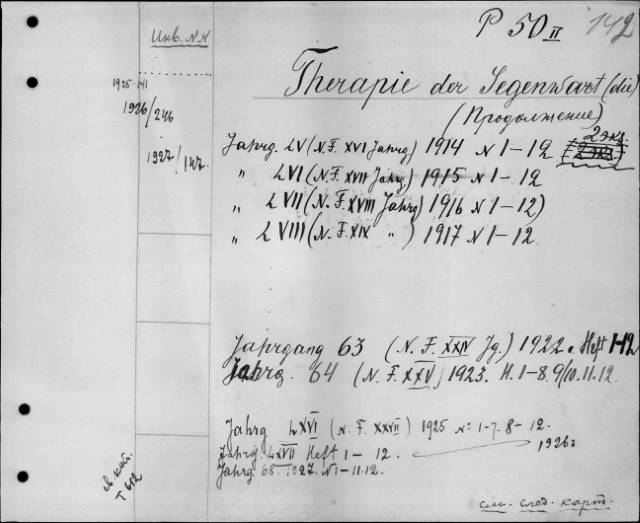 P 50 II 142
Инв. N.N
Therapie der Gegenwart (die)
(Продолжение)
1925 141
1926/246
1927/147
2 экз.
Jahrg. LV (N.F. XVI Jahrg) 1914 N 1-12
" LVI (N.F. XVII Jahrg) 1915 N 1-12
" LVII (N.F. XVIII Jahrg) 1916 N 1-12)
" LVIII (N.F. XIX " ) 1917 N 1-12.
Jahrgang 63 (N.F. XXIV Jg.) 1922. Heft 1-12
Jahrg. 64 (N.F. XXV) 1923. H. 1-8. 9/10. 11. 12.
Jahrg LXVI (N.F. XXVII) 1925 N: 1-7. 8-12.
Jahrg. LXVII Heft 1-12. 1926г
Jahrg. 68. 1927. N 1-11. 12.
св. кат.
T 612
см. след. карт.